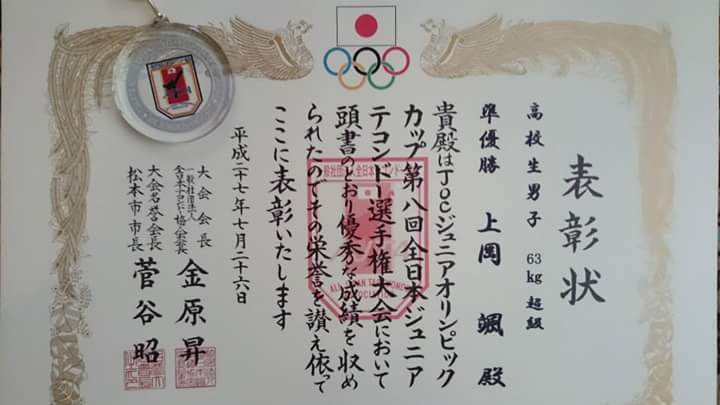 表彰状
高校生男子 63kg超級
準優勝 上岡 颯 殿
貴殿はJOCジュニアオリンピック
カップ第八回全日本ジュニア
テコンドー選手権大会において
頭書のとおり優秀な成績を収め
られたのでその栄誉を讃え依って
ここに表彰いたします
平成二十七年七月二十六日
大会会長
一般社団法人
全日本テコンドー協会会長
金原昇
大会名誉会長
松本市市長
菅谷昭